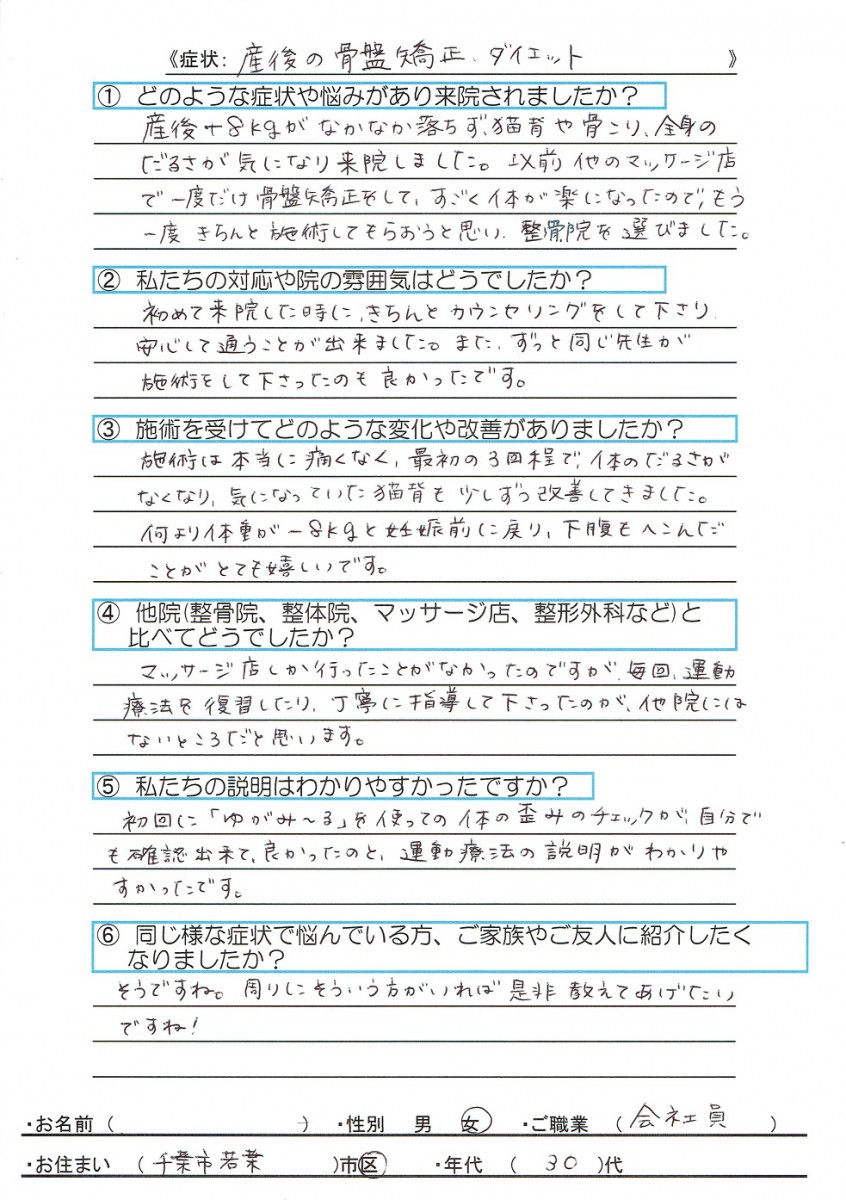 《症状: 産後の骨盤矯正、ダイエット 》
① どのような症状や悩みがあり来院されましたか？
産後+8kgがなかなか落ちず、猫背や骨こり、全身の
だるさが気になり来院しました。以前他のマッサージ店
で一度だけ骨盤矯正をして、すごく体が楽になったので、もう
一度きちんと施術してもらおうと思い、整骨院を選びました。
② 私たちの対応や院の雰囲気はどうでしたか？
初めて来院した時に、きちんとカウンセリングをして下さり
安心して通うことが出来ました。また、ずっと同じ先生が
施術をして下さったのも良かったです。
③ 施術を受けてどのような変化や改善がありましたか？
施術は本当に痛くなく、最初の3回程で、体のだるさが
なくなり、気になっていた猫背も少しずつ改善してきました。
何より体重が-8kgと妊娠前に戻り、下腹もへこんだ
ことがとても嬉しいです。
④ 他院(整骨院、整体院、マッサージ店、整形外科など)と
比べてどうでしたか？
マッサージ店しか行ったことがなかったのですが、毎回、運動
療法を復習したり、丁寧に指導して下さったのが、他院には
ないところだと思います。
⑤ 私たちの説明はわかりやすかったですか？
初回に「ゆがみ～る」を使っての体の歪みのチェックが、自分で
も確認出来て、良かったのと、運動療法の説明がわかりや
すかったです。
⑥ 同じ様な症状で悩んでいる方、ご家族やご友人に紹介したく
なりましたか？
そうですね。周りにそういう方がいれば是非教えてあげたい
ですね!
・お名前（ ） ・性別 男 女 ・ご職業 （会社員 ）
・お住まい （千葉市若葉 ）市区 ・年代 （ 30 ）代